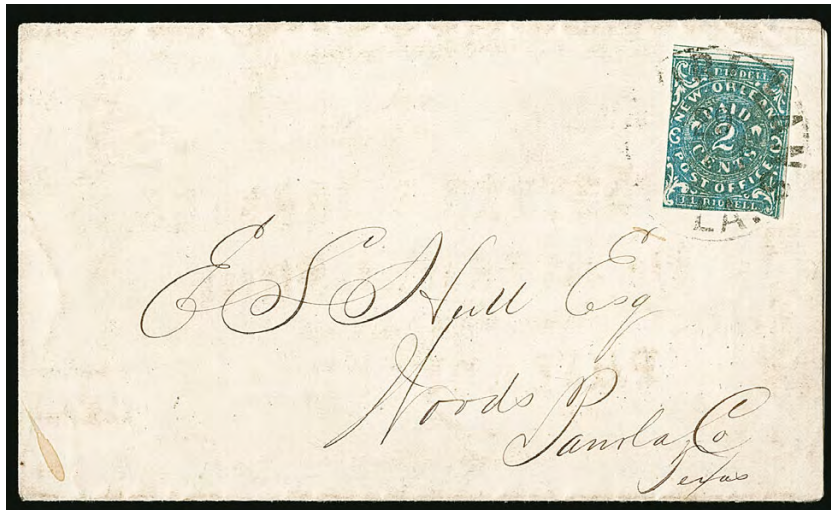 J.L. RIDDELL
NEW ORLEANS
PAID
2
CENTS
POST OFFICE
J.L. RIDDELL
LA.
E S Hull Esq
Woods
Panola Co
Texas